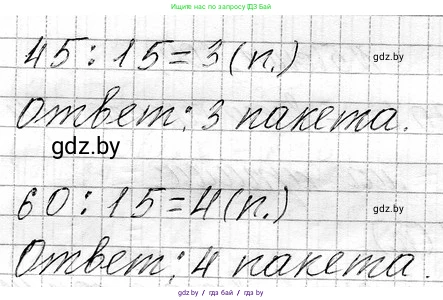 Ищите нас в интернете по адресу gdz.top
45:15=3(п.)
gdz.by
Ответ: 3 пакета.
gdz.by
60:15=4(п.)
gdz.by
Ответ: 4 пакета.
gdz.by / гдз бай / gdz.top